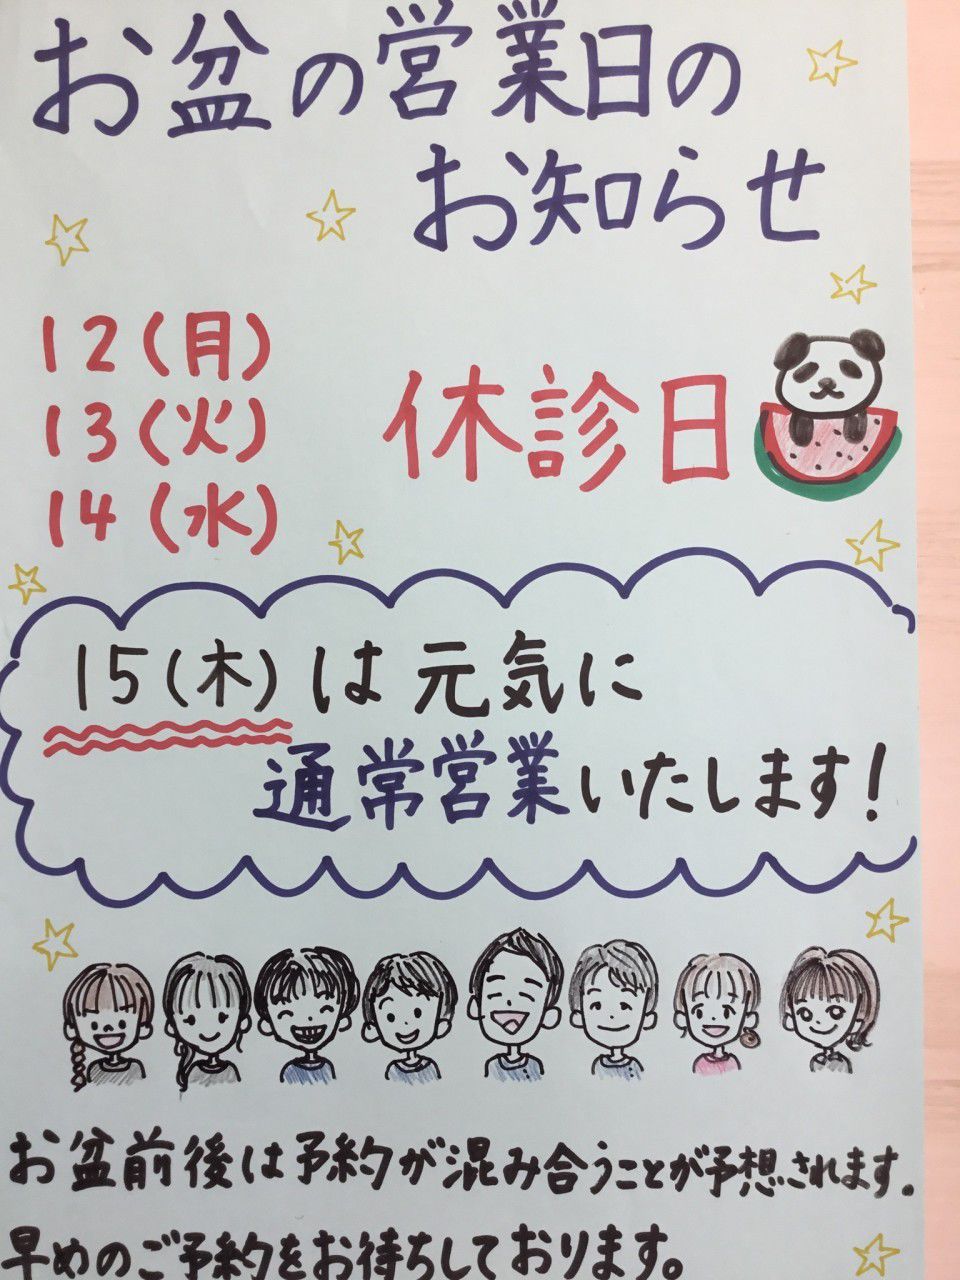 お盆の営業日の
お知らせ
12(月)
13(火)
14(水)
休診日
15(木)は元気に
通常営業いたします!
お盆前後は予約が混み合うことが予想されます。
早めのご予約をお待ちしております。